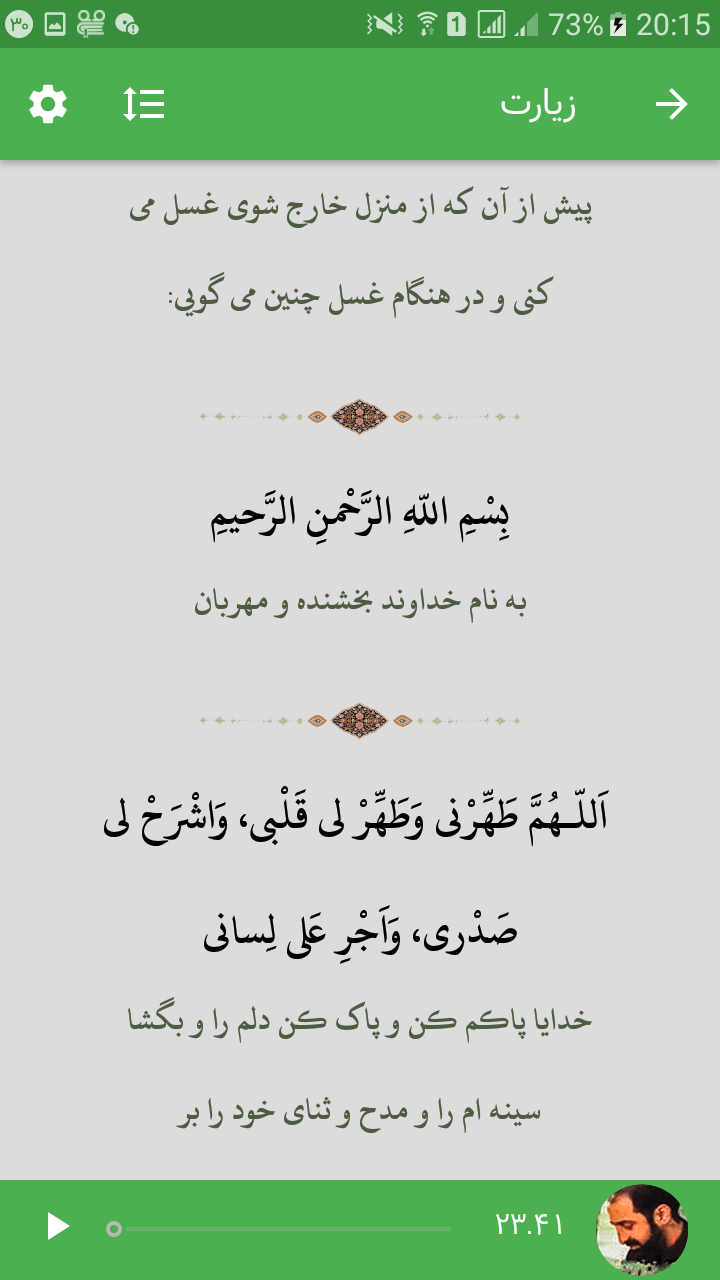 ۳۰ 1 73% 20:15
زیارت
پیش از آن که از منزل خارج شوی غسل می
کنی و در هنگام غسل چنین می گویی:
بِسْمِ اللّهِ الرَّحْمنِ الرَّحیمِ
به نام خداوند بخشنده و مهربان
اَللّـهُمَّ طَهِّرْنی وَطَهِّرْ لی قَلْبی، وَاشْرَحْ لی
صَدْری، وَاَجْرِ عَلی لِسانی
خدایا پاکم کن و پاک کن دلم را و بگشا
سینه ام را و مدح و ثنای خود را بر
۲۳.۴۱